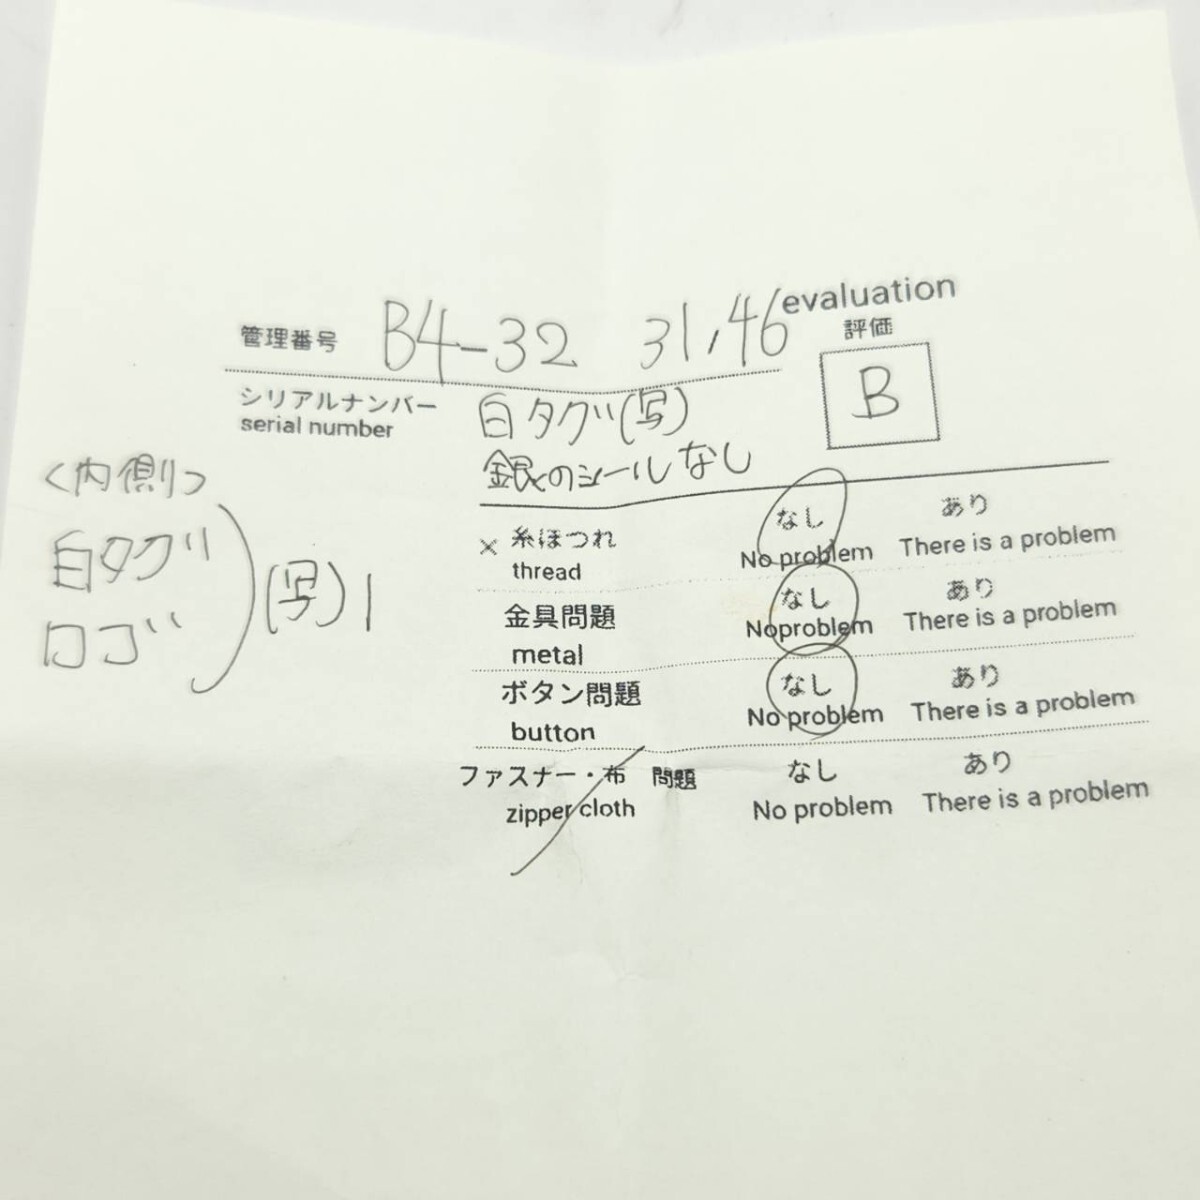 管理番号 B4-32 31,46
evaluation
評価
B
シリアルナンバー 白タグ(写)
serial number
銀のシールなし
<内側>
白タグ
ロゴ
(写)
× 糸ほつれ なし あり
thread No problem There is a problem
金具問題 なし あり
metal No problem There is a problem
ボタン問題 なし あり
button No problem There is a problem
ファスナー・布 問題 なし あり
zipper cloth No problem There is a problem